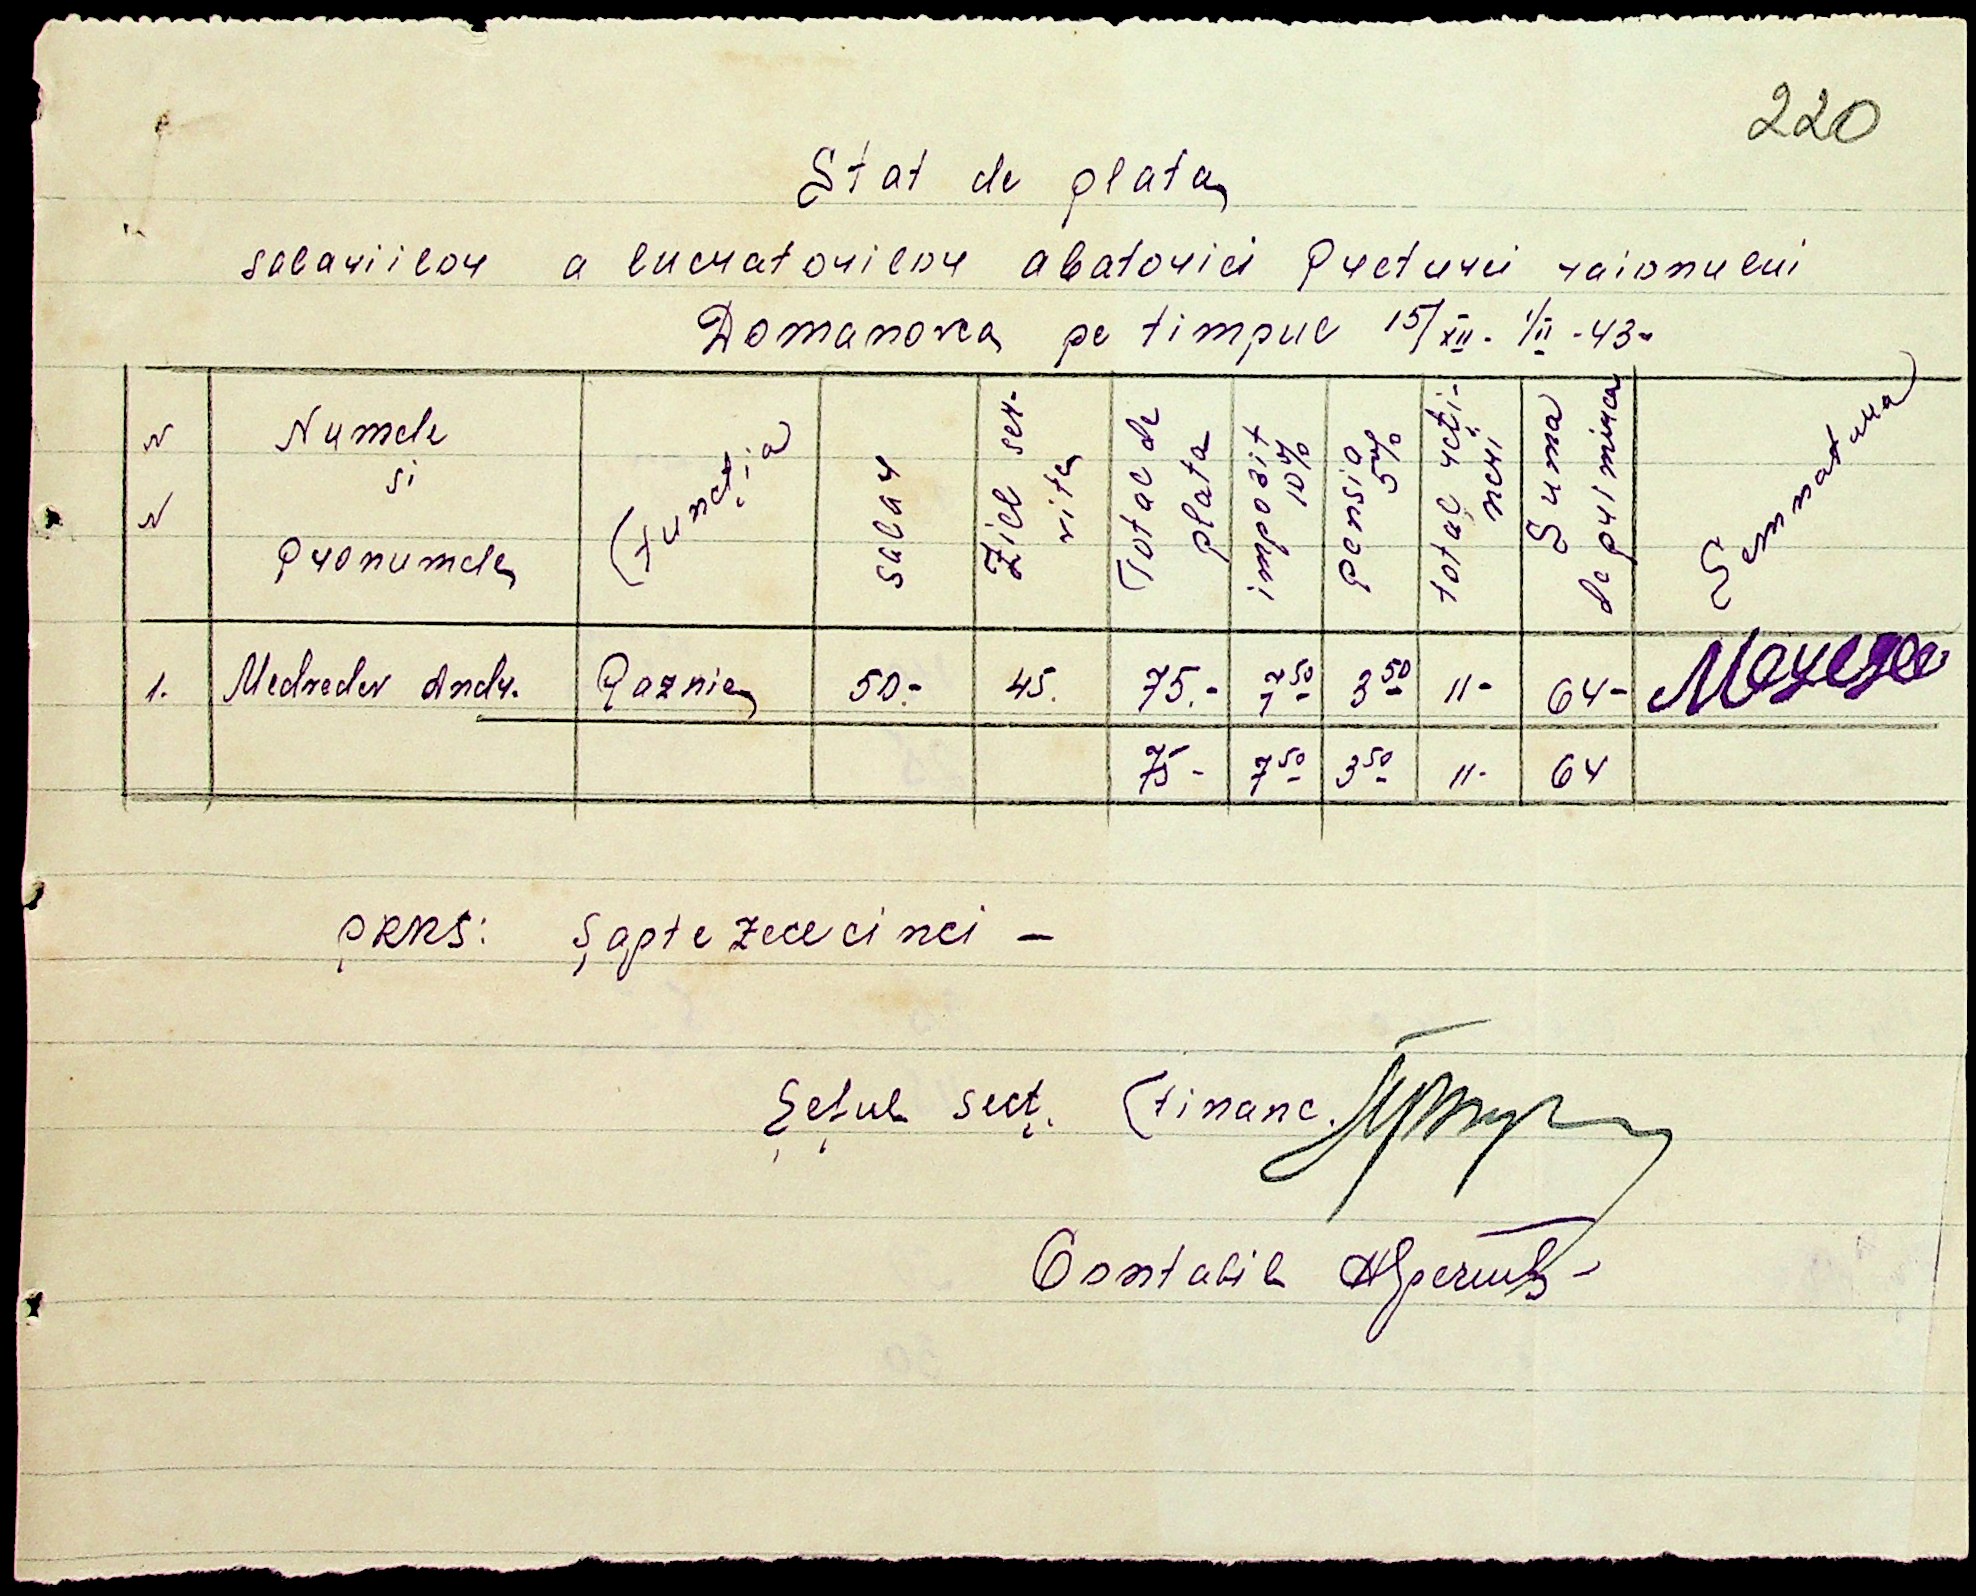 220
Stat de plata
salariilor a lucratorilor abatoriei Preturei raionului
Domanovca pe timpul 15/XII - 1/II - 43 -
N N
Numele si Pronumele
Functia
Salar
Ziel servite
Total de plata
impozit 10%
pensia 5%
total retineri
Suma de primirea
Semnatura
1. Medvedev Andr. Paznic 50.- 45. 75.- 7 50 3 50 11- 64-
75- 7 50 3 50 11- 64
PRNS: Șapte zece cinci —
Șeful sect. financ.
Contabil